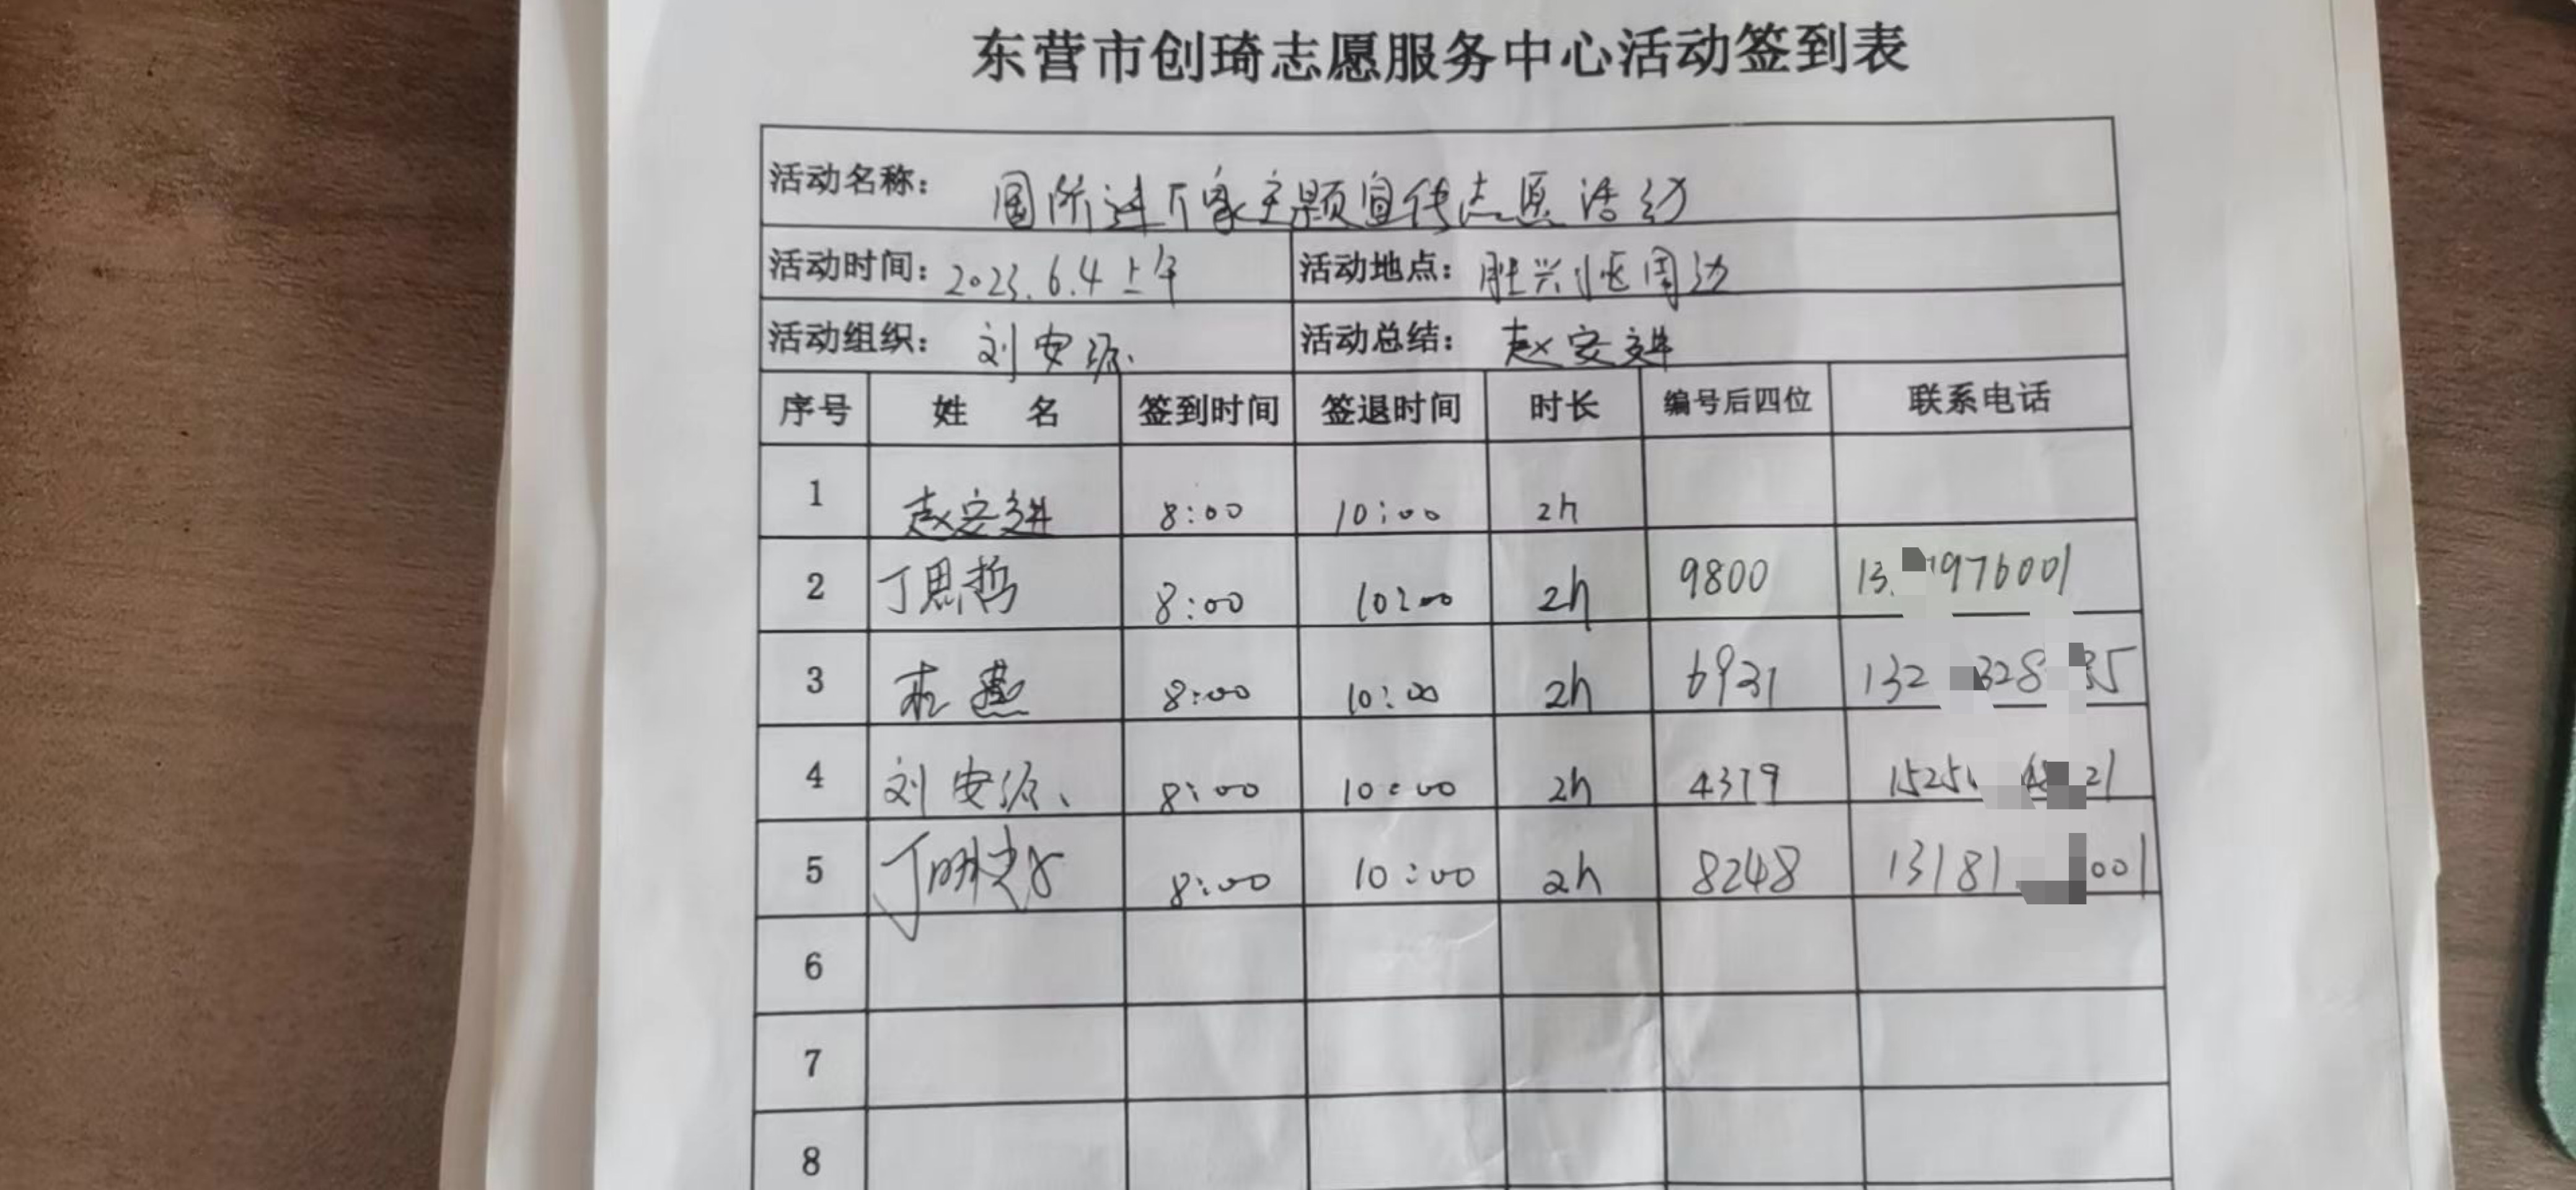 东营市创琦志愿服务中心活动签到表
活动名称： 国防进万家主题宣传志愿活动
活动时间：2023.6.4上午 活动地点： 胜兴小区周边
活动组织： 刘安源 活动总结： 赵安
序号 姓 名 签到时间 签退时间 时长 编号后四位 联系电话
1 赵安 8:00 10:00 2h
2 丁思哲 8:00 10:00 2h 9800 13 976001
3 燕 8:00 10:00 2h 6931 132 328 35
4 刘安源 8:00 10:00 2h 4379 1525 21
5 丁 8:00 10:00 2h 8248 13181 001
6
7
8